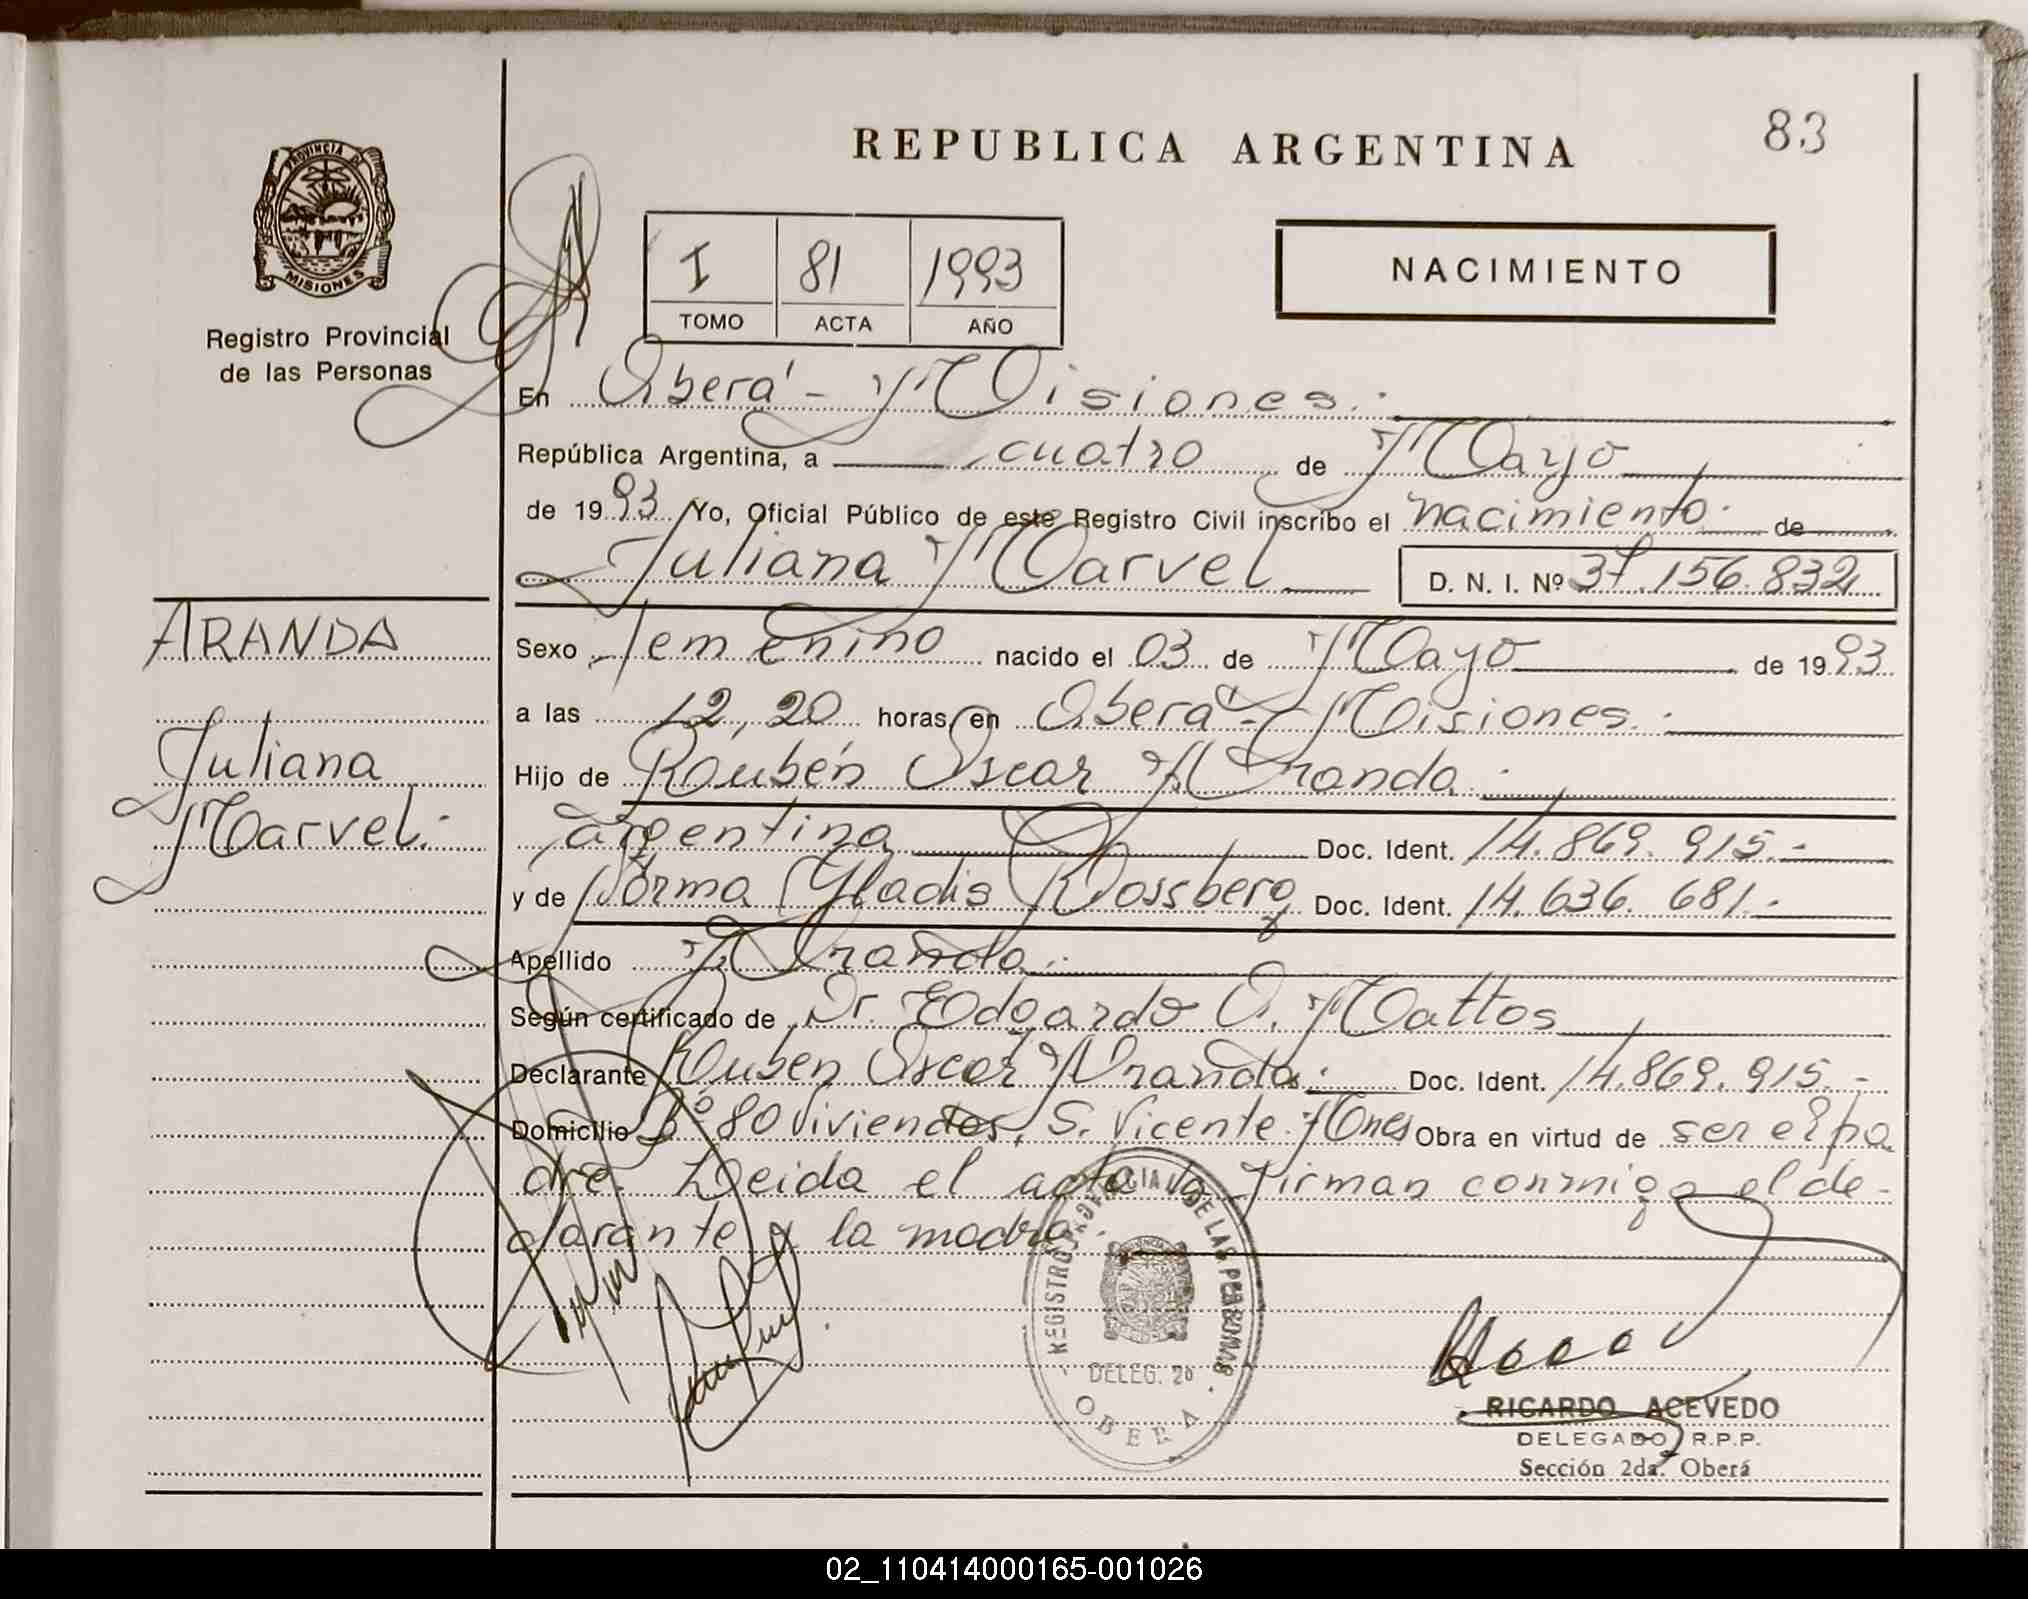 REPUBLICA ARGENTINA
83
PROVINCIA DE
MISIONES
Registro Provincial
de las Personas
I 81 1993
TOMO ACTA AÑO
NACIMIENTO
En Oberá - Misiones.
República Argentina, a cuatro de Mayo
de 1993 Yo, Oficial Público de este Registro Civil inscribo el nacimiento de
Juliana Marvel D. N. I. Nº 37.156.832
ARANDA
Juliana
Marvel.
Sexo Femenino nacido el 03 de Mayo de 1993
a las 12,20 horas, en Oberá - Misiones.
Hijo de Rubén Oscar Aranda.
argentina Doc. Ident. 14.869.915.-
y de Norma Gladis Rossberg Doc. Ident. 14.636.681.-
Apellido Aranda.
Según certificado de Dr. Edgardo O. Mattos
Declarante Ruben Oscar Aranda. Doc. Ident. 14.869.915.-
Domicilio Bº 80 Viviendas, S. Vicente. Mnes Obra en virtud de ser el pa
dre. Leida el acta la firman conmigo el de-
clarante y la madre.
REGISTRO PROVINCIAL DE LAS PERSONAS
DELEG. 2ª
OBERA
RICARDO ACEVEDO
DELEGADO R.P.P.
Sección 2da. Oberá
02_110414000165-001026